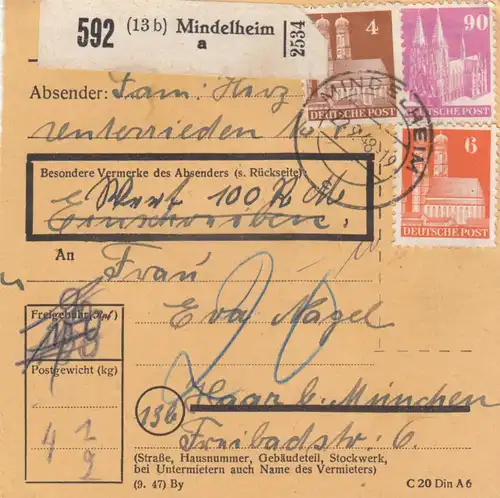 592 (13 b) Mindelheim
a
2534
4
DEUTSCHE POST
90
DEUTSCHE POST
6
DEUTSCHE POST
MINDELHEIM
Absender: Fam. Herz
Unterrieden
Besondere Vermerke des Absenders (s. Rückseite):
Wert 100 R M
Einschreiben.
An Frau
Eva Nagel
Freigebühr (Rpf)
Postgewicht (kg)
4 1/2
20
13b
Haar b. München
Freibadstr. 6.
(Straße, Hausnummer, Gebäudeteil, Stockwerk,
bei Untermietern auch Name des Vermieters)
(9. 47) By
C 20 Din A 6